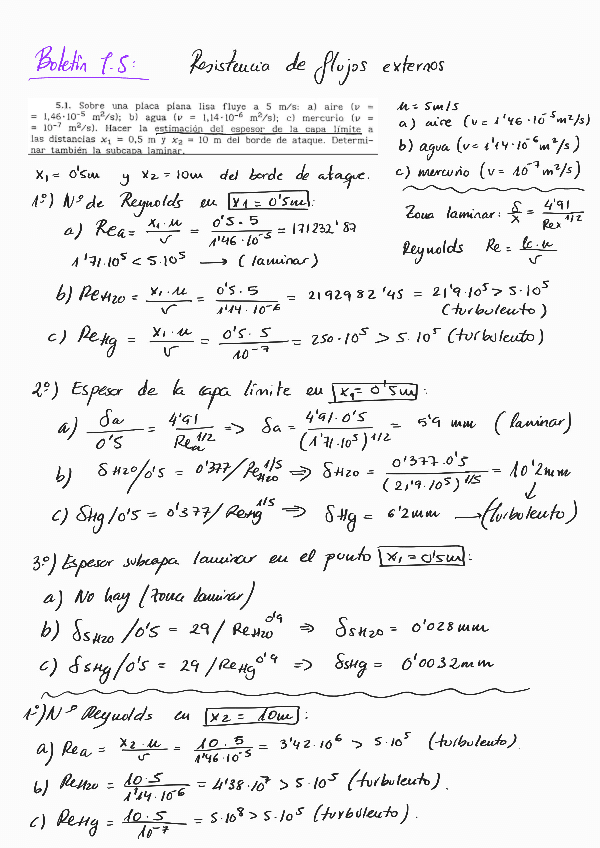 Boletín 1.5: Resistencia de flujos externos
5.1. Sobre una placa plana lisa fluye a 5 m/s: a) aire (ν =
= 1,46·10⁻⁵ m²/s); b) agua (ν = 1,14·10⁻⁶ m²/s); c) mercurio (ν =
= 10⁻⁷ m²/s). Hacer la estimación del espesor de la capa límite a
las distancias x₁ = 0,5 m y x₂ = 10 m del borde de ataque. Determi-
nar también la subcapa laminar.
u = 5m/s
a) aire (v = 1'46·10⁻⁵ m²/s)
b) agua (v = 1'14·10⁻⁶ m²/s)
c) mercurio (v = 10⁻⁷ m²/s)
x₁ = 0'5m y x₂ = 10m del borde de ataque.
Zona laminar: δ/x = 4'91/Rex^1/2
Reynolds Re = lc·u/v
1º) Nº de Reynolds en x1 = 0'5m:
a) Rea = x₁·u/v = 0'5·5/1'46·10⁻⁵ = 171232'87
1'71·10⁵ < 5·10⁵ → (laminar)
b) ReH2O = x₁·u/v = 0'5·5/1'14·10⁻⁶ = 2192982'45 = 21'9·10⁵ > 5·10⁵
(turbulento)
c) ReHg = x₁·u/v = 0'5·5/10⁻⁷ = 250·10⁵ > 5·10⁵ (turbulento)
2º) Espesor de la capa límite en x₁ = 0'5m:
a) δa/0'5 = 4'91/Rea^1/2 => δa = 4'91·0'5/(1'71·10⁵)^1/2 = 5'9 mm (laminar)
b) δH2O/0'5 = 0'377/ReH2O^1/5 => δH2O = 0'377·0'5/(21'9·10⁵)^1/5 = 10'2mm
↓
c) δHg/0'5 = 0'377/ReHg^1/5 => δHg = 6'2mm → (turbulento)
3º) Espesor subcapa laminar en el punto x₁ = 0'5m:
a) No hay (zona laminar)
b) δsH2O/0'5 = 29/ReH2O^0'9 => δsH2O = 0'028mm
c) δsHg/0'5 = 29/ReHg^0'9 => δsHg = 0'0032mm
1º) Nº Reynolds en x2 = 10m:
a) Rea = x₂·u/v = 10·5/1'46·10⁻⁵ = 3'42·10⁶ > 5·10⁵ (turbulento).
b) ReH2O = 10·5/1'14·10⁻⁶ = 4'38·10⁷ > 5·10⁵ (turbulento).
c) ReHg = 10·5/10⁻⁷ = 5·10⁸ > 5·10⁵ (turbulento).